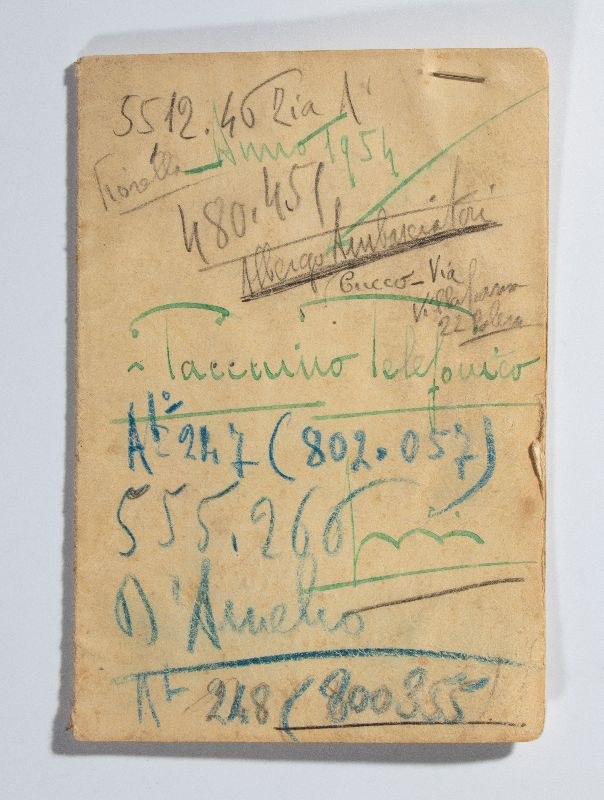 5512.46 Zia A"
Fiorella Anno 1954
480.451
Albergo Ambasciatori
Cucco - Via
22
Taccuino Telefonico
At° 247 (802.057)
555.266
D'Amelio
At 248 (800355